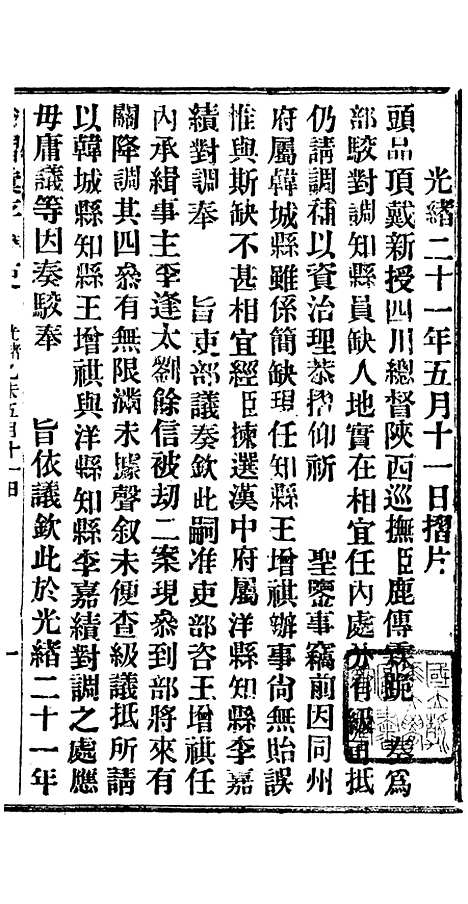 光緒二十一年五月十一日摺片
頭品頂戴新授四川總督陝西巡撫臣鹿傳霖跪 奏爲
部駮對調知縣員缺人地實在相宜任內處分有級可抵
仍請調補以資治理恭摺仰祈 聖鑒事竊前因同州
府屬韓城縣雖係簡缺現任知縣王增祺辦事尙無貽誤
惟與斯缺不甚相宜經臣揀選漢中府屬洋縣知縣李嘉
績對調奉 旨吏部議奏欽此嗣准吏部咨王增祺任
內承緝事主李逢太劉餘信被刧二案現叅到部將來有
關降調其四叅有無限滿未據聲叙未便查級議抵所請
以韓城縣知縣王增祺與洋縣知縣李嘉績對調之處應
毋庸議等因奏駮奉 旨依議欽此於光緒二十一年
光緒乙未五月十一日
一